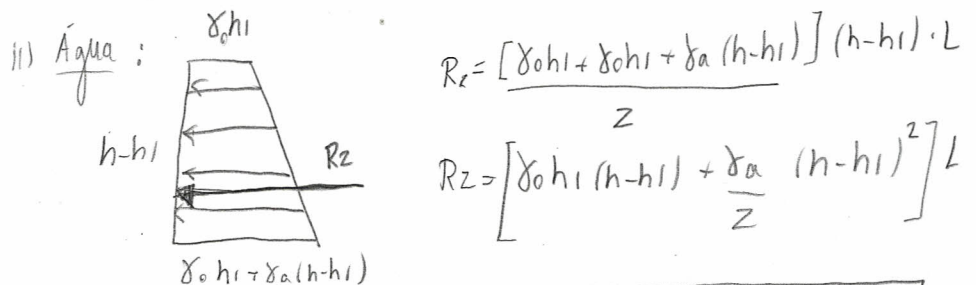 ii) Água :
γoh1
h-h1
R2
γo h1 + γa(h-h1)
R2 = [γoh1 + γoh1 + γa (h-h1)] (h-h1) · L
2
R2 = [γoh1 (h-h1) + γa (h-h1)² ] L
2